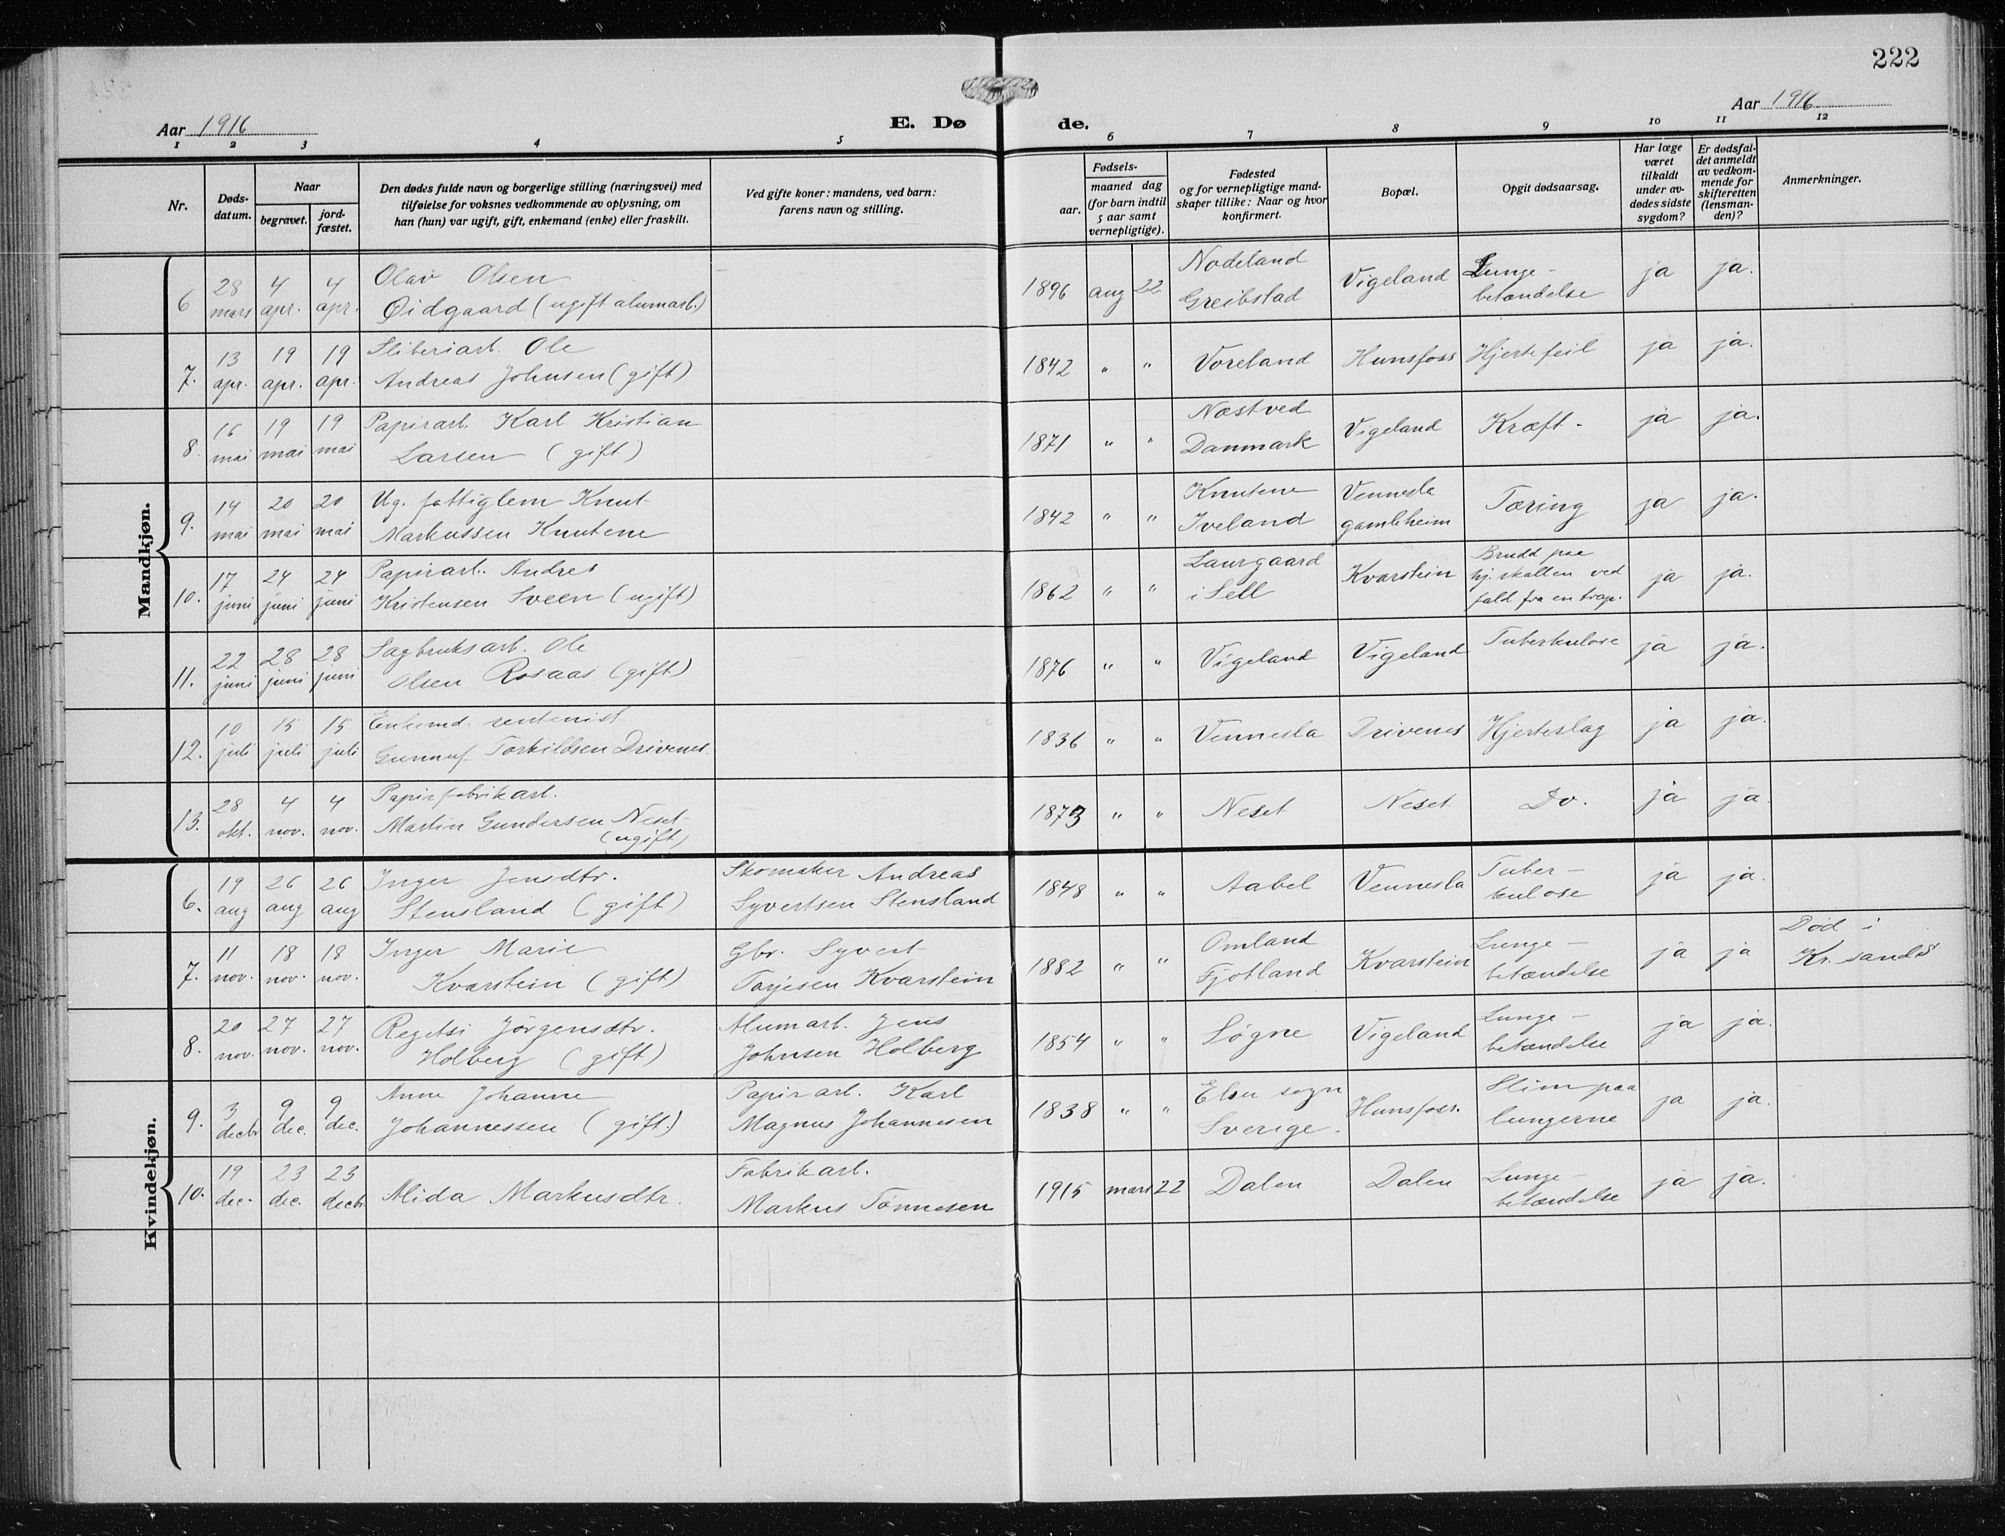 222
Aar 1916
E. Dø
de.
Aar 1916
1 2 3 4 5 6 7 8 9 10 11 12
Nr.
Døds-
datum.
Naar
begravet.
jord-
fæstet.
Den dødes fulde navn og borgerlige stilling (næringsvei) med
tilføielse for voksnes vedkommende av oplysning, om
han (hun) var ugift, gift, enkemand (enke) eller fraskilt.
Ved gifte koner: mandens, ved barn:
farens navn og stilling.
Fødsels-
aar.
maaned dag
(for barn indtil
5 aar samt
vernepligtige).
Fødested
og for vernepligtige mand-
skaper tillike: Naar og hvor
konfirmert.
Bopæl.
Opgit dødsaarsag.
Har læge
været
tilkaldt
under av-
dødes sidste
sygdom?
Er dødsfal-
det anmeldt
av vedkom-
mende for
skifteretten
(lensman-
den)?
Anmerkninger.
Mandkjøn.
28 4 4 Olav Olsen Nodeland Lunge-
6 mars apr. apr. Øidgaard (ugift alumarb.) 1896 aug 22 Greibstad Vigeland betændelse ja ja.
13 19 19 Sliberiarb. Ole
7. apr. apr. apr. Andreas Johnsen (gift) 1842 " " Voreland Hunsfoss Hjertefeil ja ja.
16 19 19 Papirarb. Karl Kristian Næstved
8 mai mai mai Larsen (gift) 1871 " " Danmark Vigeland Kræft - ja ja.
14 20 20 Ug. fattiglem Knut Knutene Vennesla
9. mai mai mai Markussen Knutene 1842 " " Iveland gamleheim Tæring ja ja.
17 24 24 Papirarb. Andres Laurgaard Brudd paa
10. juni juni juni Kristensen Sveen (ugift) 1862 " " i Sell Kvarstein hj. skallen ved ja ja.
fald fra en trap.
22 28 28 Sagbruksarb. Ole
11. juni juni juni Olsen Rosaas (gift) 1876 " " Vigeland Vigeland Tuberkulose ja ja.
10 15 15 Enkemd. rentenist
12. juli juli juli Gunnuf Torkildsen Drivenes. 1836 " " Vennesla Drivenes Hjerteslag ja ja.
28 4 4 Papirfabrikarb.
13. okt. nov. nov. Martin Gundersen Neset 1873 " " Neset Neset Do. ja ja.
(ugift)
Kvindekjøn.
19 26 26 Inger Jensdtr. Skomaker Andreas Tuber-
6. aug aug aug Stensland (gift) Syvertsen Stensland 1848 " " Aabel Vennesla kulose ja ja.
11 18 18 Inger Marie Gbr. Syvert Omland Lunge- Død i
7. nov. nov. nov. Kvarstein (gift) Torjesen Kvarstein 1882 " " Fjotland Kvarstein betændelse ja ja Kr. sands
20 27 27 Regitsi Jørgensdtr. Alumarb. Jens Lunge-
8. nov. nov. nov. Holberg (gift) Johnsen Holberg 1854 " " Søgne Vigeland betændelse ja ja.
3 9 9 Anne Johanne Papirarb. Karl sogn Slim paa
9. decbr dec. dec. Johannessen (gift.) Magnus Johannesen 1838 " " Sverige. Hunsfoss. lungerne ja ja.
19 23 23 Fabrikarb. Lunge-
10. dec. dec. decbr Alida Markusdtr. Markus Tønnesen 1915 mars 22 Dalen Dalen betændelse ja ja.